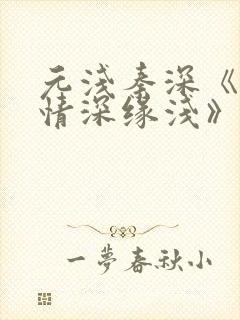 元浅秦深《
情深缘浅》
一夢春秋小